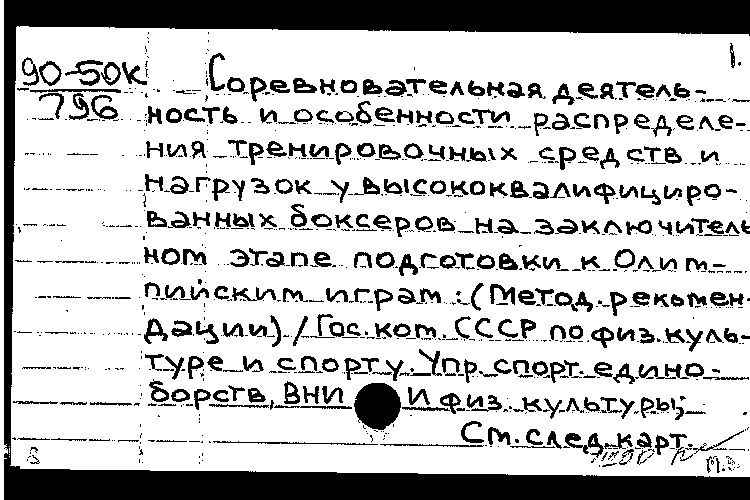 1.
90-50К
796
Соревновательная деятель-
ность и особенности распределе-
ния тренировочных средств и
нагрузок у высококвалифициро-
ванных боксеров на заключитель
ном этапе подготовки к Олим-
пийским играм: (Метод. рекомен-
дации) / Гос. ком. СССР по физ. куль-
туре и спорту. Упр. спорт. едино-
борств, ВНИ И физ. культуры;
См. след. карт.
8
М.В.